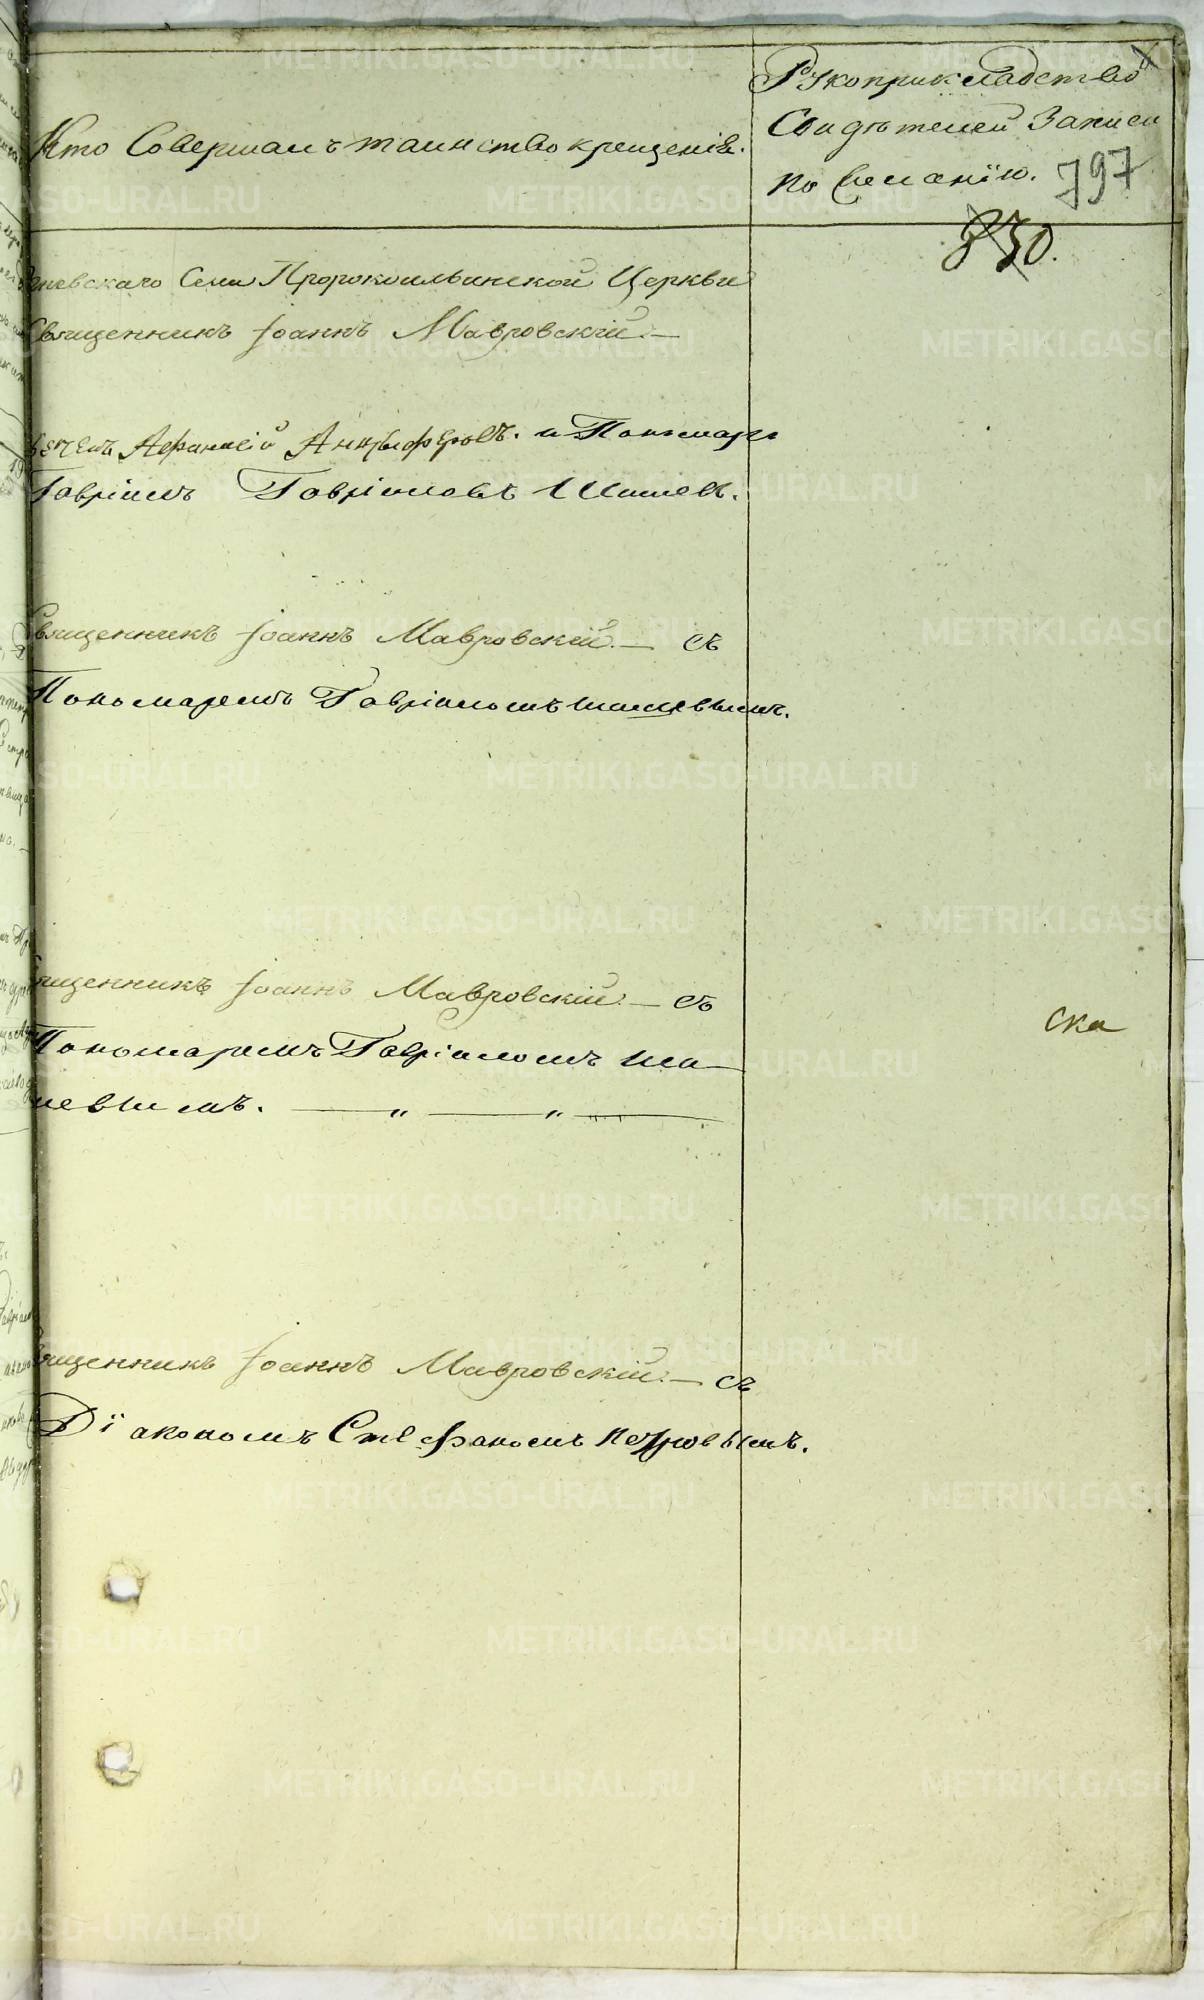 Кто Совершалъ таинство крещенія.
Рукоприкладство
Свидѣтелей Записи
по желанію. 797
830.
Села Пророкоильинской Церкви
Священникъ Іоаннъ Мавровскій.—
Афанасій Анцыферовъ. и Пономарь
Гавріилъ Гавріиловъ Шишевъ.
Священникъ Іоаннъ Мавровскій.— съ
Пономаремъ Гавріиломъ Шишевымъ.
Священникъ Іоаннъ Мавровскій.— съ
Пономаремъ Гавріиломъ Ши-
шевымъ. — „ — „ —
ска
Священникъ Іоаннъ Мавровскій.— съ
Діакономъ Стефаномъ Петровымъ.
METRIKI.GASO-URAL.RU